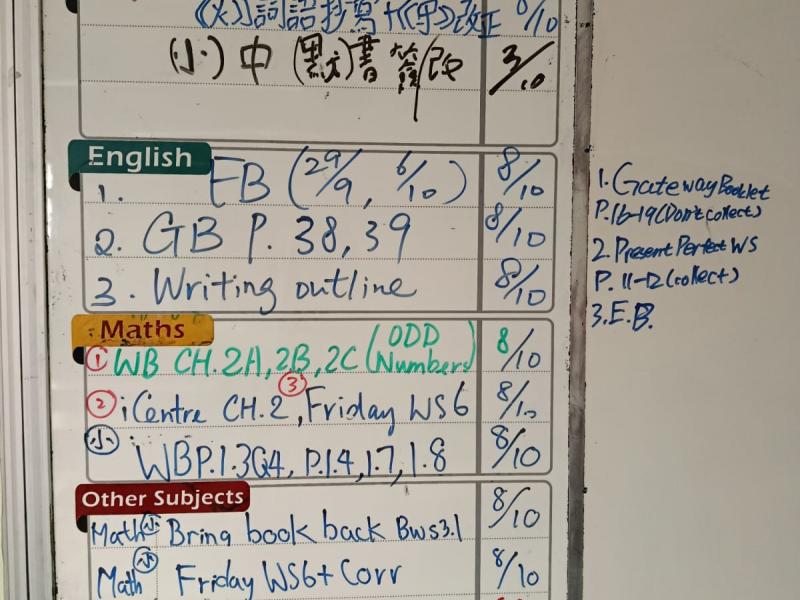 詞語抄寫+改正 8/10
(小) 中 (默)書 簽/改 3/10
English
1. EB (29/9, 6/10) 8/10
2. GB P. 38, 39 8/10
3. Writing outline 8/10
Maths
① WB CH. 2A, 2B, 2C (ODD Numbers) 8/10
② iCentre CH. 2, ③ Friday WS 6 8/10
小 WB P.1.3 Q4, P.1.4, 1.7, 1.8 8/10
Other Subjects
Math 小 Bring book back Bws3.1 8/10
Math 小 Friday WS6 + Corr 8/10
1. Gateway Booklet
P.16-19 (Don't collect)
2. Present Perfect WS
P. 11-12 (collect)
3. E.B.